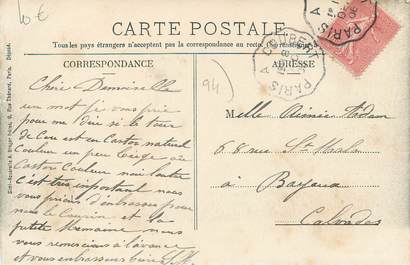 10€
CARTE POSTALE
Tous les pays étrangers n'acceptent pas la correspondance au recto. (Se renseigner
CORRESPONDANCE
ADRESSE
94
PARIS A COLBERT
Chère Demoiselle
un mot s'il vous prie
pour me dire si le tour
de Cou est en Castor naturel
Couleur un peu beige ou
Castor Couleur noir loutre
c'est très important nous
vous prions d'embrasser pour
nous le Cousin et la
petite Germaine nous
vous remercions à l'avance
et vous embrassons bien
Melle Aimée Adam
68 rue St Malo
à Bayeux
Calvados